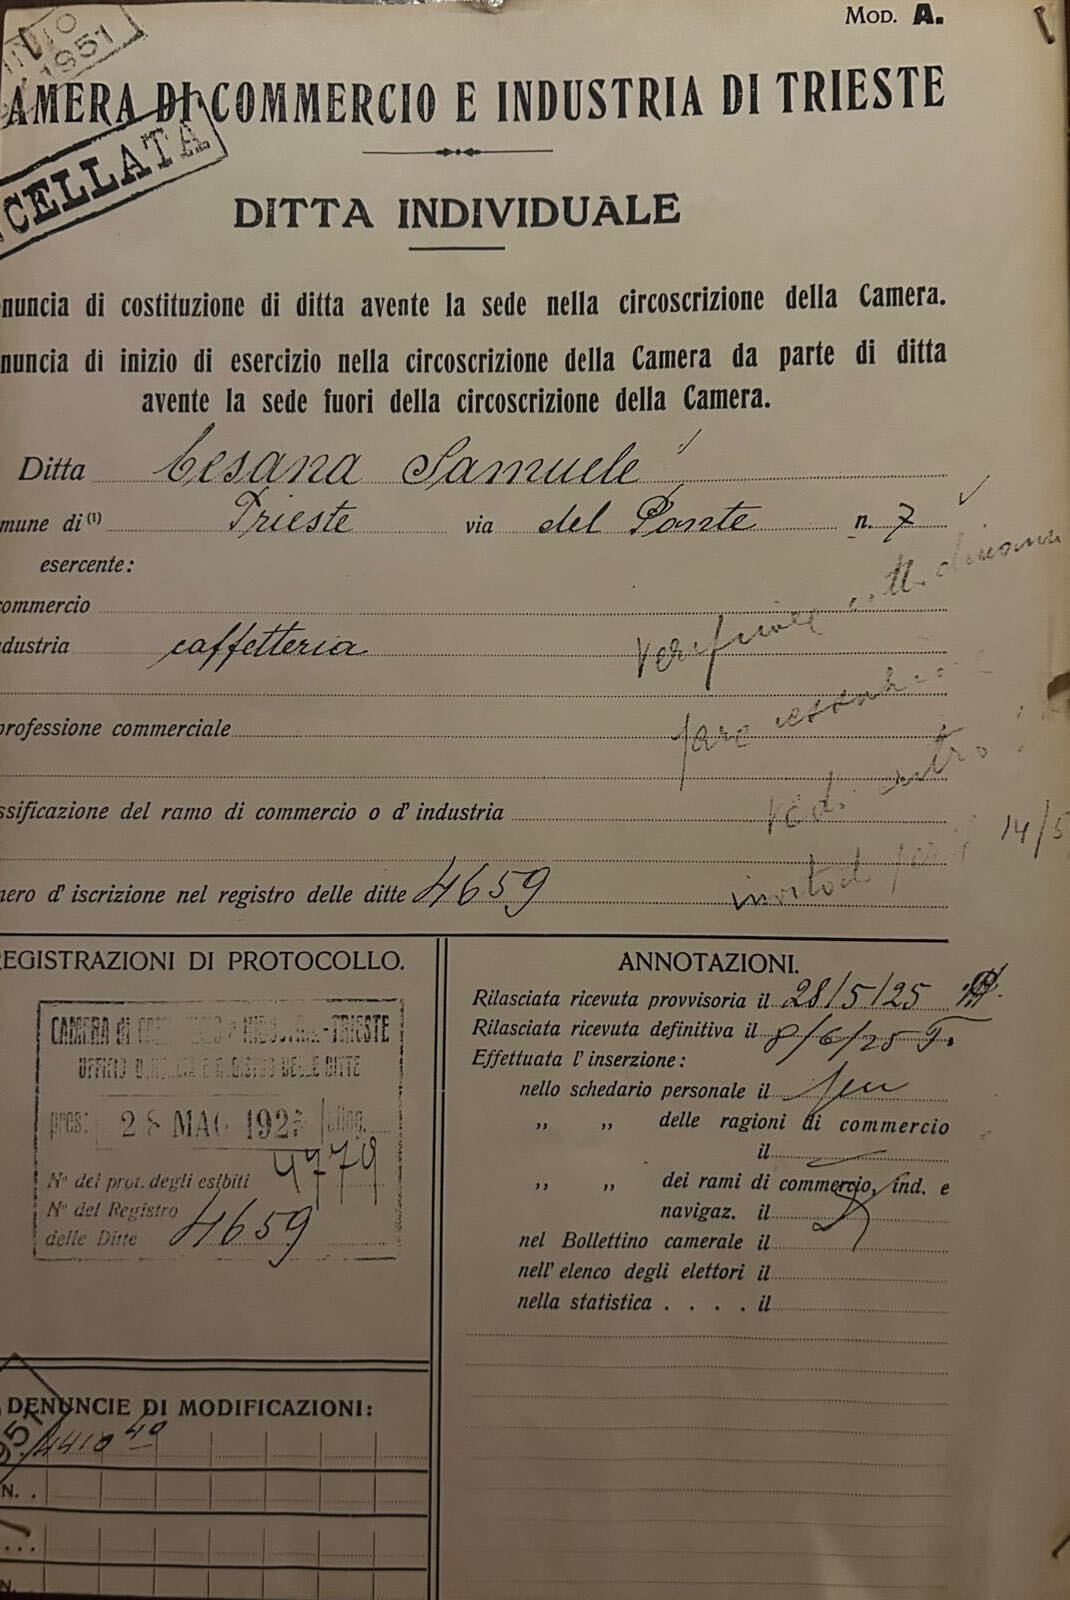 Mod. A.
1951
AMERA DI COMMERCIO E INDUSTRIA DI TRIESTE
CELLATA
DITTA INDIVIDUALE
nuncia di costituzione di ditta avente la sede nella circoscrizione della Camera.
nuncia di inizio di esercizio nella circoscrizione della Camera da parte di ditta
avente la sede fuori della circoscrizione della Camera.
Ditta Cesana Samuele
mune di (1) Trieste via del Ponte n. 7
esercente:
commercio
dustria caffetteria
professione commerciale
vedi
ssificazione del ramo di commercio o d' industria
14/5
nero d' iscrizione nel registro delle ditte 4659
EGISTRAZIONI DI PROTOCOLLO.
CAMERA di COMMERCIO e INDUSTRIA - TRIESTE
UFFICIO
DELLE DITTE
pres: 28 MAG 192
N° dei prot. degli esibiti 4779
N° del Registro
delle Ditte 4659
DENUNCIE DI MODIFICAZIONI:
4410 40
N. .
N.
ANNOTAZIONI.
Rilasciata ricevuta provvisoria il 28/5/25
Rilasciata ricevuta definitiva il 8/6/25
Effettuata l' inserzione:
nello schedario personale il
„ „ delle ragioni di commercio
il
„ „ dei rami di commercio, ind. e
navigaz. il
nel Bollettino camerale il
nell' elenco degli elettori il
nella statistica . . . . il